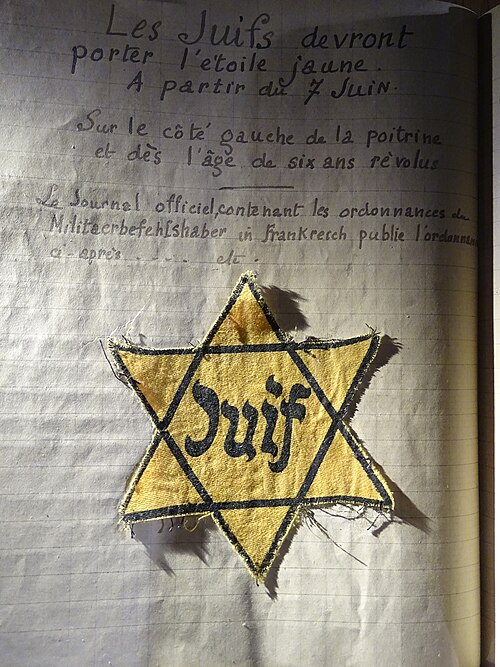 Les Juifs devront
porter l'étoile jaune.
A partir du 7 Juin.
Sur le côté gauche de la poitrine
et dès l'âge de six ans révolus
Le Journal officiel, contenant les ordonnances du
Militaerbefehlshaber in Frankreich, publie l'ordonnan
ci-après ..... etc.
Juif